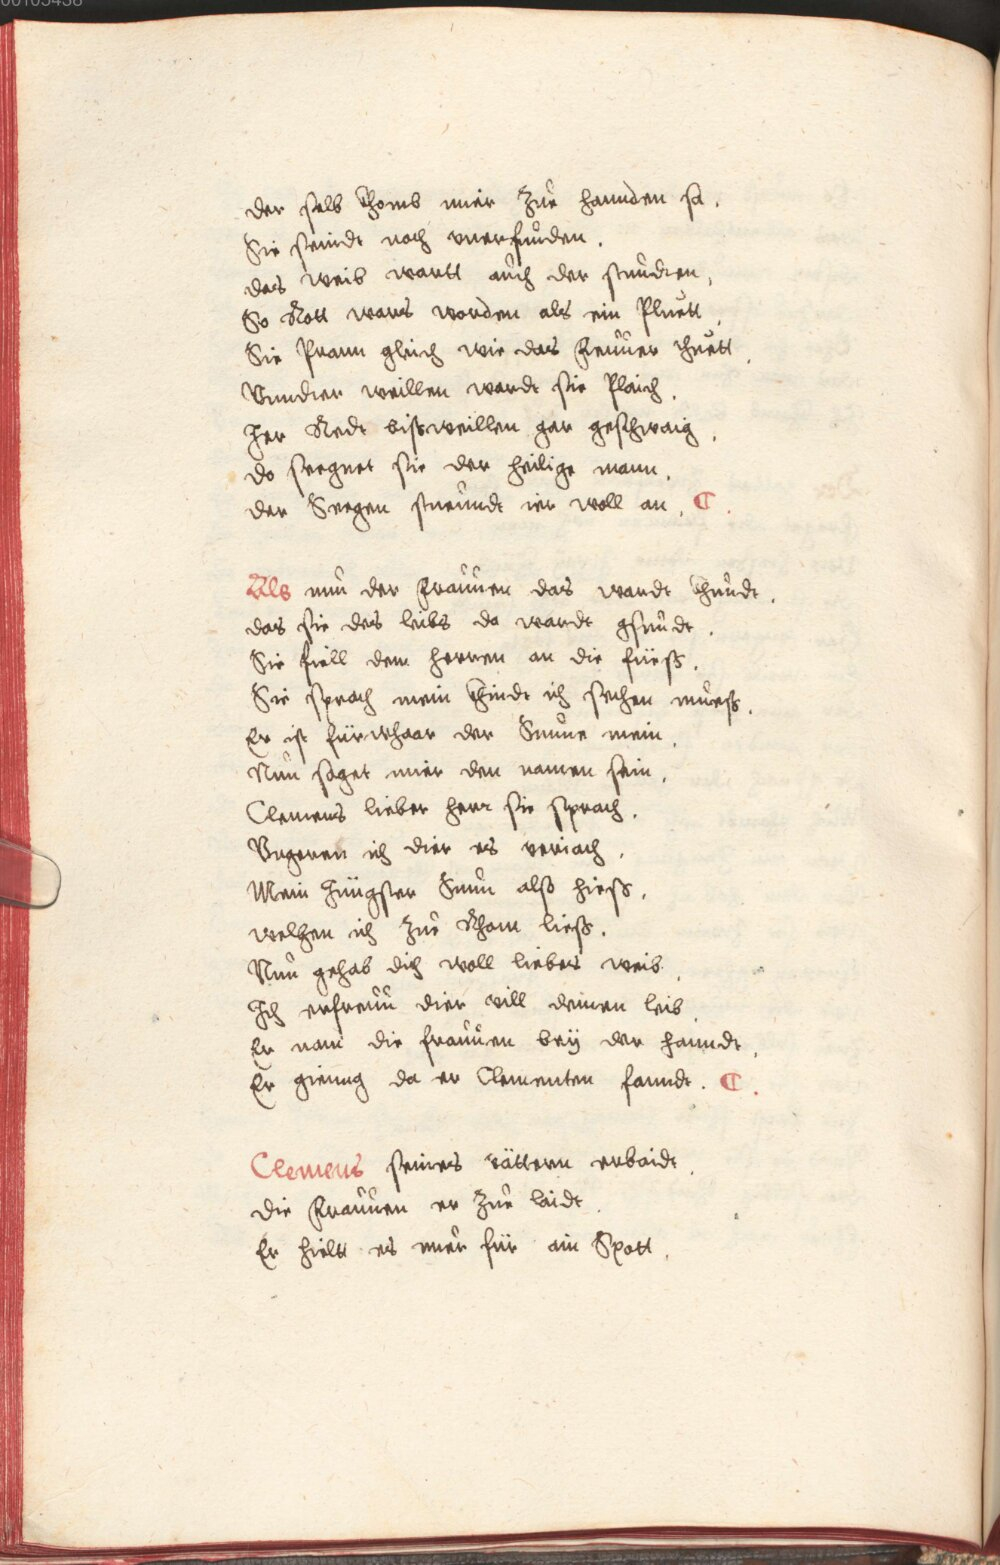 00105458
der selb khomb mier Zue hannden sa.
Sie seindt noch vnerfunden.
das weib wartt auch der stundten,
So Rott wars worden als ein Pluett,
Sie Prann gleich wie das Feuuer thuett,
Vnndter weillen wardt sie Plaich,
Jer Redt bißweillen gar geschwaig,
do seegnet sie der heilige mann,
der Seegen stuenndt ier woll an,
Als nun der Frauuen das wardt khundt,
das sie des leibs da wardt gsundt,
Sie fiell dem herren an die füeß,
Sie sprach mein khindt ich sechen mueß,
Er ist fürwhaar der Sunne mein,
Nun saget mier den namen sein,
Clemens lieber herr sie sprach,
Vngeren ich dier es veriach,
Mein Jüngster Sunn alß hieß,
welhen ich Zue Rhom ließ.
Nun gehab dich woll liebes weib,
Ich erfreuu dier vill deinen leib,
Er nam die frauuen beÿ der hanndt,
Er gienng da er Clementen fanndt.
Clemens seines vättern erbaidt,
die Frauuen er Zue laidt,
Er hielt es nuer für ain Spott,